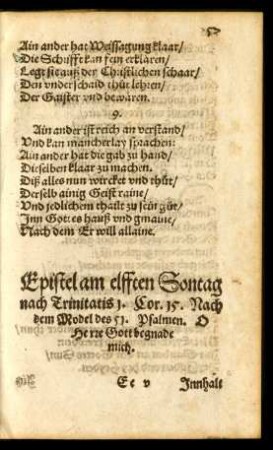 Ain ander hat Weissagung klaar/
Die Schrifft kan fein erklären/
Legt sie auß der Christlichen schaar/
Den vnderschaid thůt lehren/
Der Gaister vnd bewären.
9.
Ain ander ist reich an verstand/
Vnd kan mancherlay sprachen:
Ain ander hat die gab zů hand/
Dieselben klaar zu machen.
Diß alles nun wircket vnd thůt/
Derselb ainig Geist raine/
Vnd jedlichem thailt zu sein gůt/
Jnn Gottes hauß vnd gmaine/
Nach dem Er will allaine.
Epistel am elfften Sontag
nach Trinitatis 1. Cor. 15. Nach
dem Model des 51. Psalmen. O
Herre Gott begnade
mich.
Ee v Jnnhalt